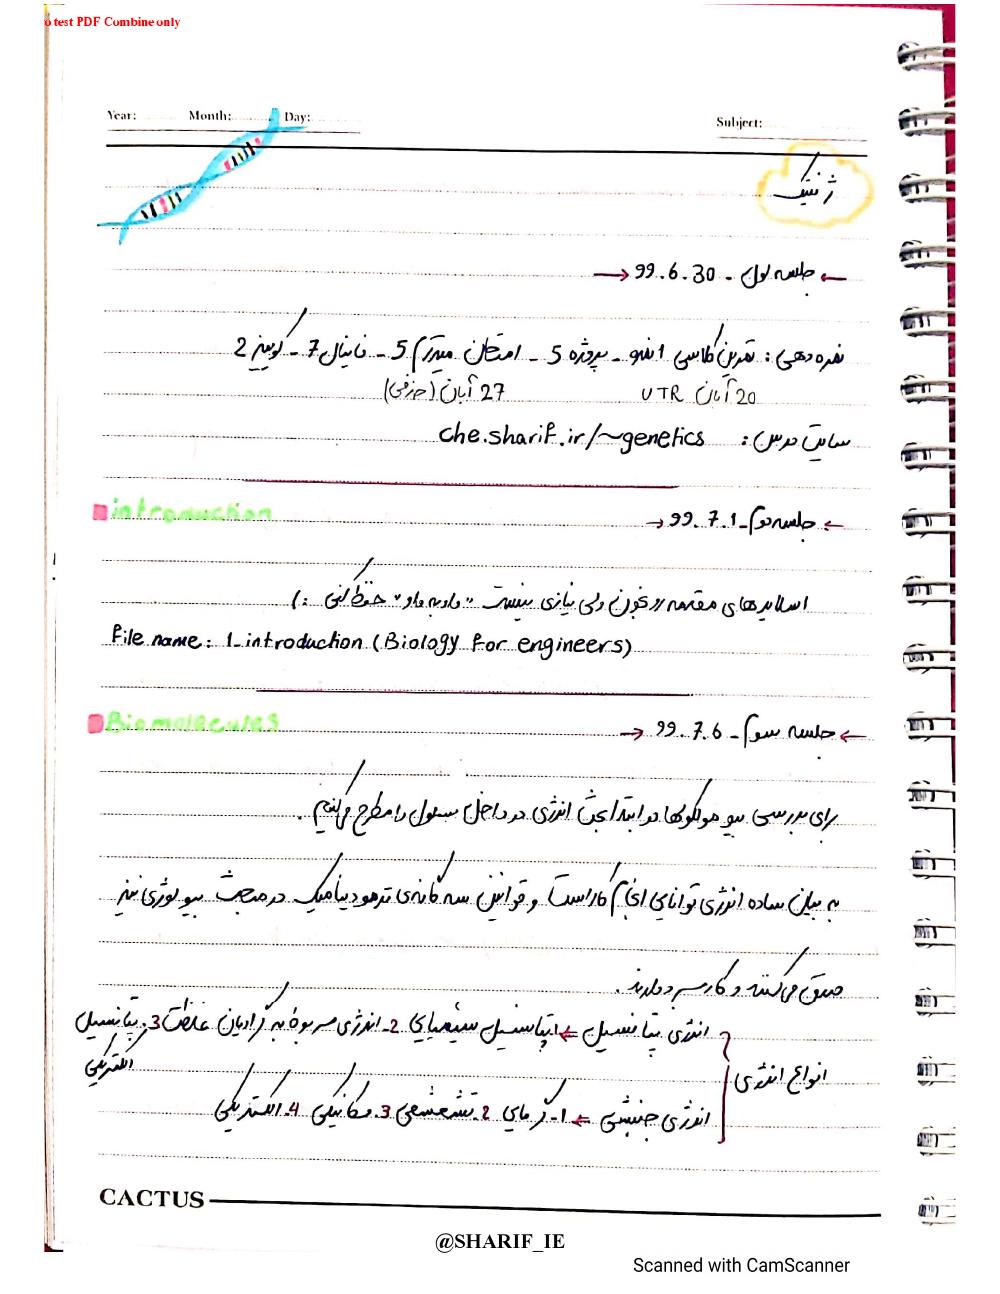 o test PDF Combine only
Year: Month: Day: Subject:
ژنتیک
← جلسه اول - 99.6.30 →
نمره دهی: تمرین کلاسی 1 نمره - پروژه 5 - امتحان میدترم 5 - فاینال 7 - کوییز 2
20 آبان UTR 27 آبان (حذفی)
سایت درس: che.sharif.ir/~genetics
introduction
← جلسه دوم - 99.7.1 →
اسلایدهای مقدمه رو بخون ولی نیازی نیست "واو به واو" حفظ کنی :)
File name: 1_introduction (Biology for engineers)
Biomolecules
← جلسه سوم - 99.7.6 →
برای بررسی بیومولکولها در ابتدا بحث انرژی در داخل سلول را مطرح می‌کنیم.
به بیان ساده انرژی توانایی انجام کار است و قوانین سه گانه‌ی ترمودینامیک در مبحث بیولوژی نیز
صدق می‌کنند و کاربرد دارند.
انواع انرژی
انرژی پتانسیل ← 1. پتانسیل شیمیایی 2- انرژی مربوط به گرادیان غلظت 3. پتانسیل الکتریکی
انرژی جنبشی ← 1- گرمایی 2. تشعشعی 3. مکانیکی 4. الکتریکی
CACTUS
@SHARIF_IE
Scanned with CamScanner